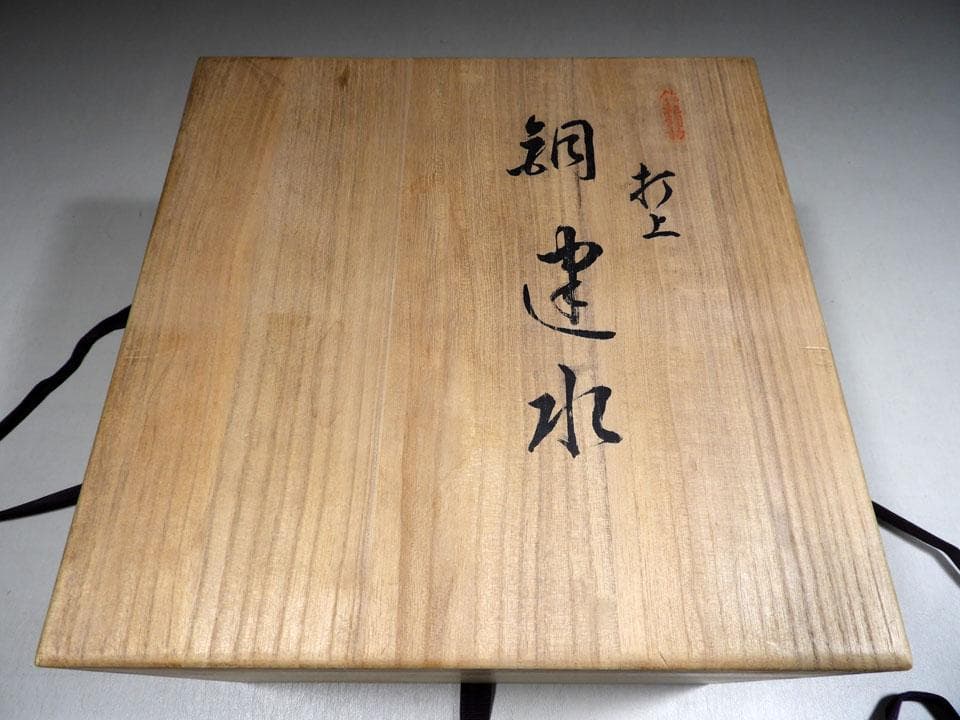 打上
銅建水